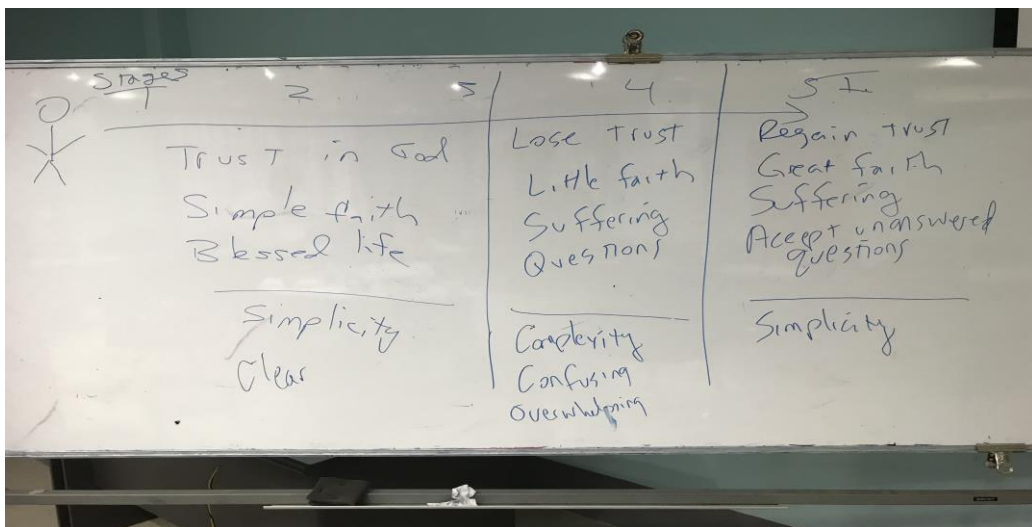 Stages
1 2 3 4 5
Trust in God
Simple faith
Blessed life
Simplicity
Clear
Lose trust
Little faith
Suffering
Questions
Complexity
Confusing
Overwhelming
Regain trust
Great faith
Suffering
Accept unanswered
questions
Simplicity